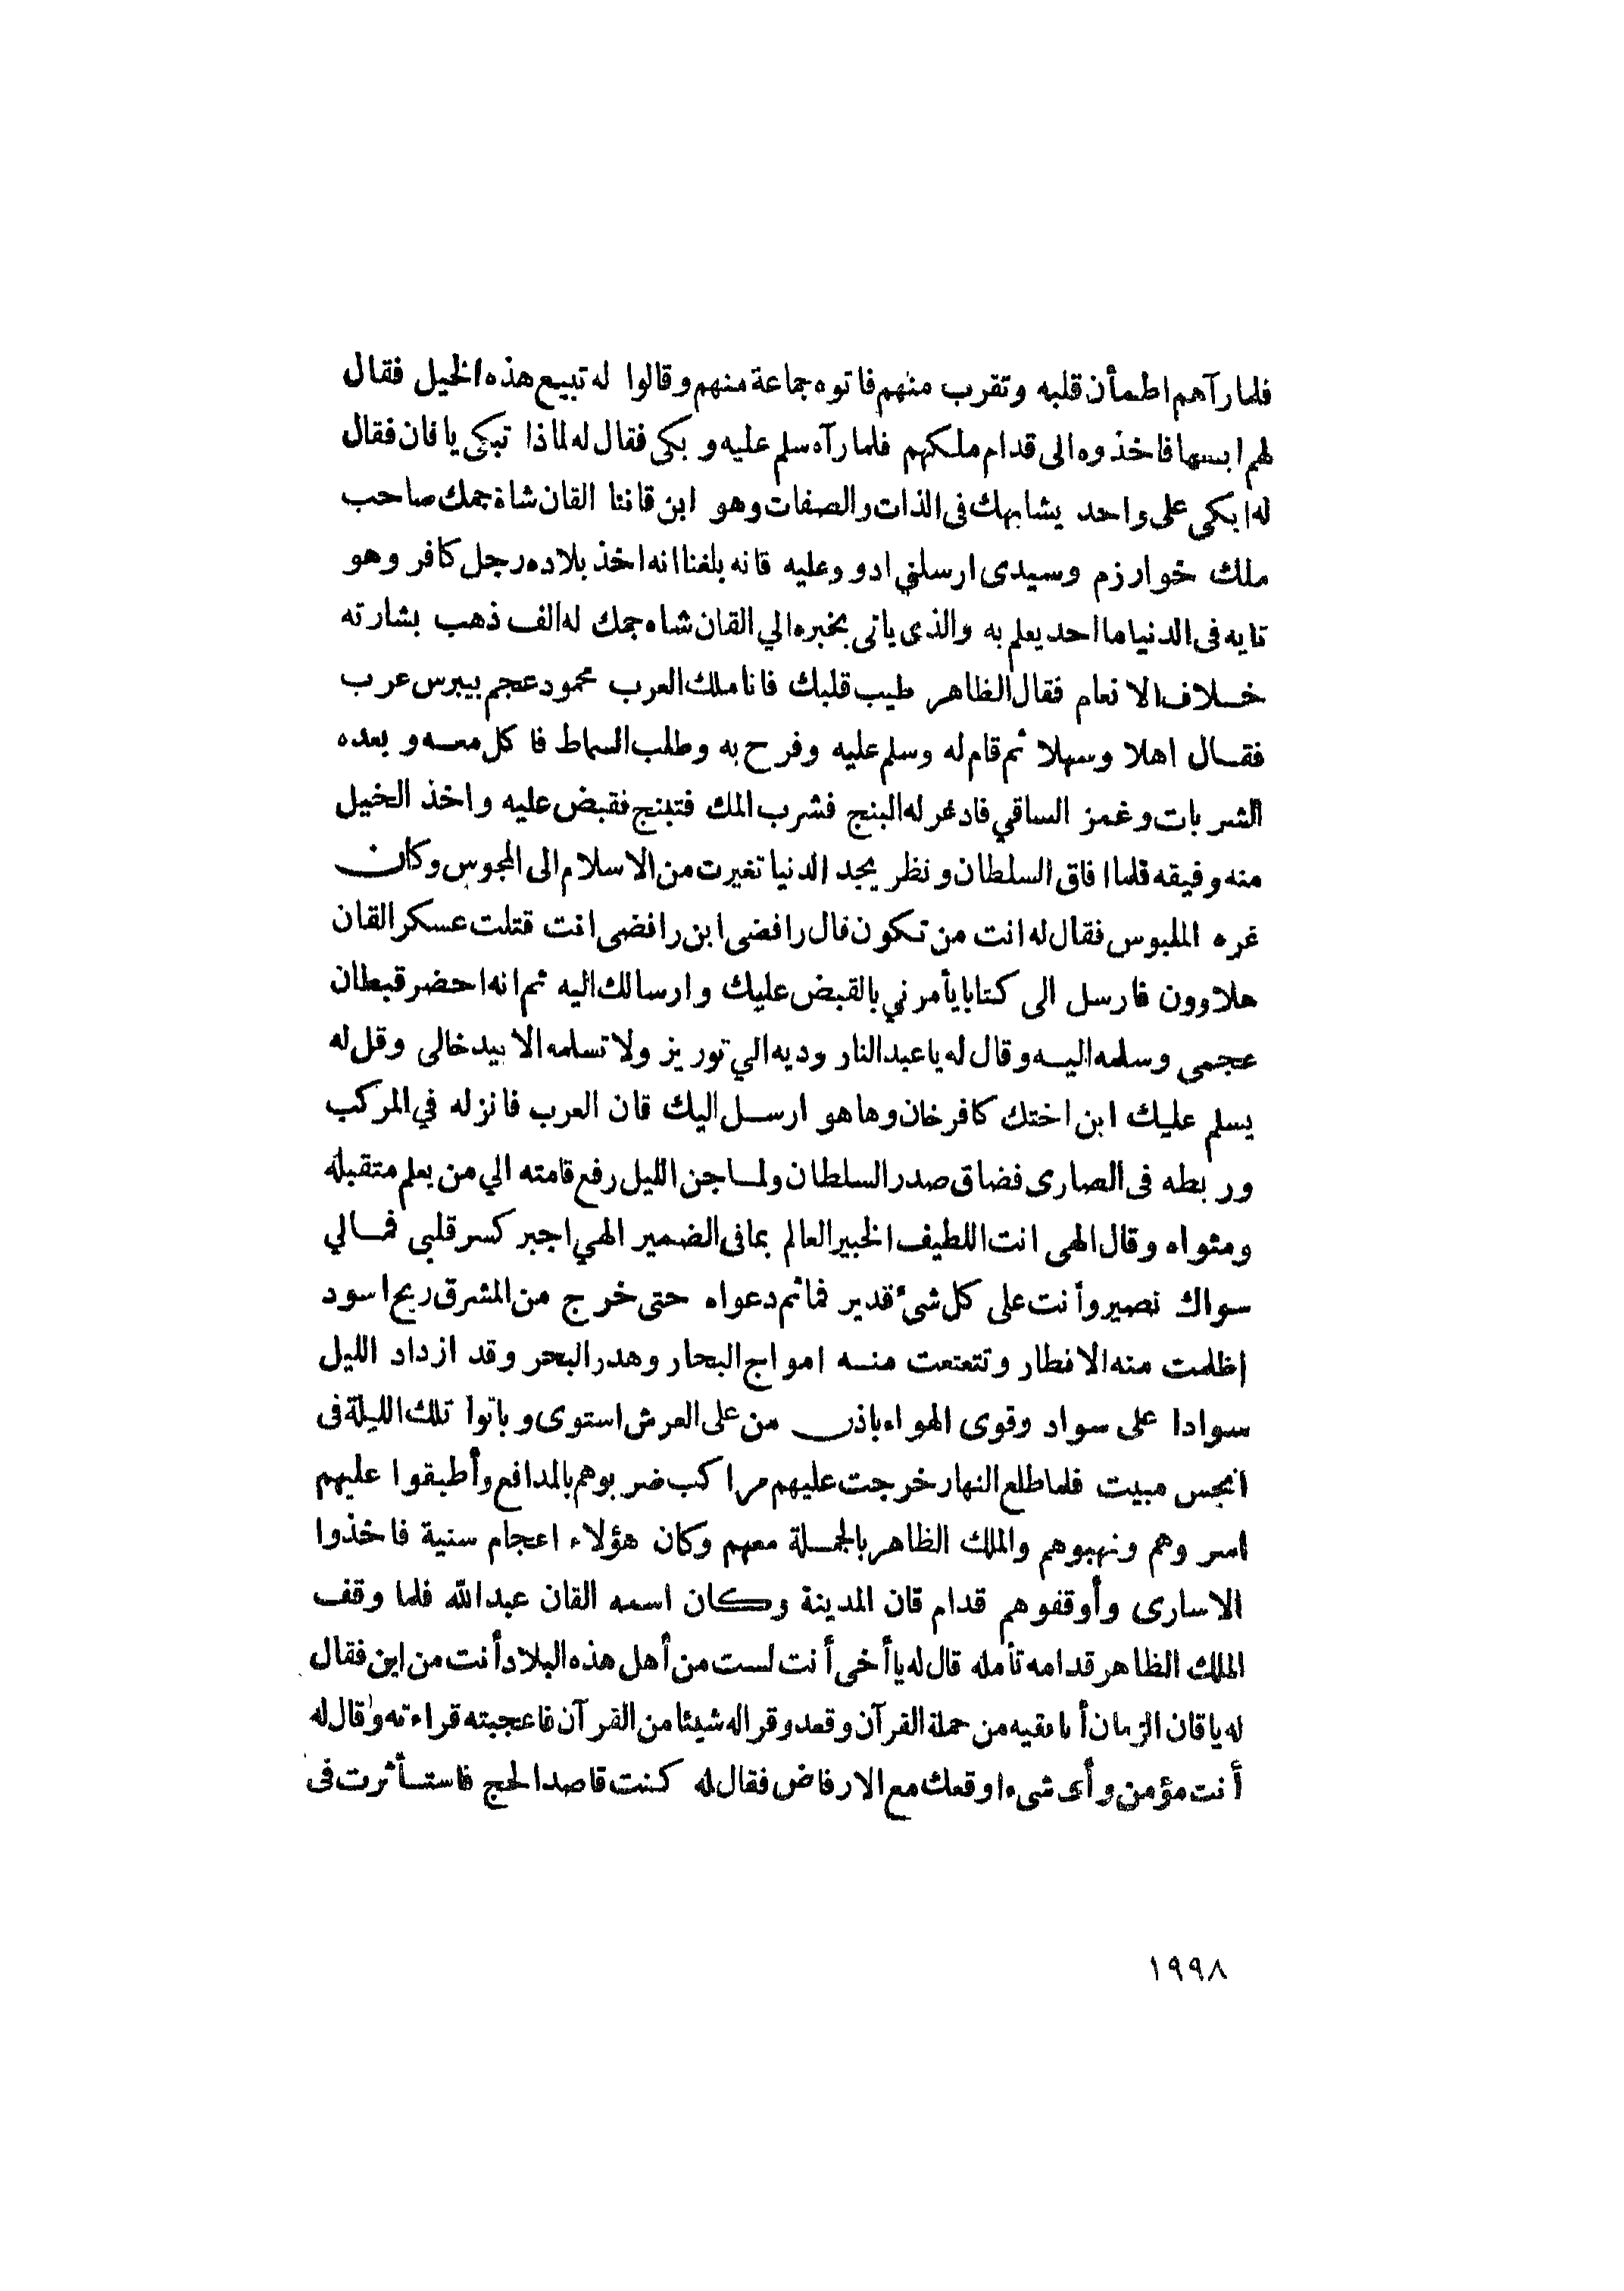 فلما رآهم اطمأن قلبه وتقرب منهم فاتوه جماعة منهم وقالوا له تبيع هذه الخيل فقال
لهم ابيعها فاخذوه الى قدام ملكهم فلما رآه سلم عليه وبكى فقال له لماذا تبكى يا قان فقال
له ابكى على واحد يشابهك فى الذات والصفات وهو ابن قاننا القان شاة جمك صاحب
ملك خوارزم وسيدى ارسلني ادور عليه فانه بلغنا انه اخذ بلاده رجل كافر وهو
تايه فى الدنيا ما احد يعلم به والذى ياتى بخبره الي القان شاه جمك له الف ذهب بشارته
خلاف الانعام فقال الظاهر طيب قلبك فانا ملك العرب محمود عجم بيبرس عرب
فقال اهلا وسهلا ثم قام له وسلم عليه وفرح به وطلب السماط فاكل معه وبعده
الشربات وغمز الساقي فادغر له البنج فشرب الملك فتبنج فقبض عليه واخذ الخيل
منه وفيقه فلما افاق السلطان ونظر يجد الدنيا تغيرت من الاسلام الى المجوس وكان
غره الملبوس فقال له انت من تكون قال رافضى ابن رافضى انت قتلت عسكر القان
هلاوون فارسل الى كتابا يأمرني بالقبض عليك وارسالك اليه ثم انه احضر قبطان
عجمى وسلمه اليه وقال له يا عبد النار وديه الي توريز ولا تسلمه الا بيد خالى وقل له
يسلم عليك ابن اختك كافر خان وها هو ارسل اليك قان العرب فانزله في المركب
وربطه فى الصارى فضاق صدر السلطان ولما جن الليل رفع قامته الي من يعلم متقبله
ومثواه وقال الهى انت اللطيف الخبير العالم بما فى الضمير الهي اجبر كسر قلبى فمالي
سواك نصير وأنت على كل شئ قدير فما تم دعواه حتى خرج من المشرق ريح اسود
اظلمت منه الاقطار وتتعتعت منه امواج البحار وهدر البحر وقد ازداد الليل
سوادا على سواد وقوى الهواء باذن من على العرش استوى وباتوا تلك الليلة فى
انجس مبيت فلما طلع النهار خرجت عليهم مراكب ضربوهم بالمدافع وأطبقوا عليهم
اسروهم ونهبوهم والملك الظاهر بالجملة معهم وكان هؤلاء اعجام سنية فاخذوا
الاسارى وأوقفوهم قدام قان المدينة وكان اسمه القان عبد الله فلما وقف
الملك الظاهر قدامه تأمله قال له يا أخى أنت لست من أهل هذه البلاد أنت من اين فقال
له يا قان الزمان أنا فقيه من حملة القرآن وقعد وقرا له شيئا من القرآن فاعجبته قراءته وقال له
أنت مؤمن وأى شىء اوقعك مع الارفاض فقال له كنت قاصدا لحج فاستأثرت فى
١٩٩٨